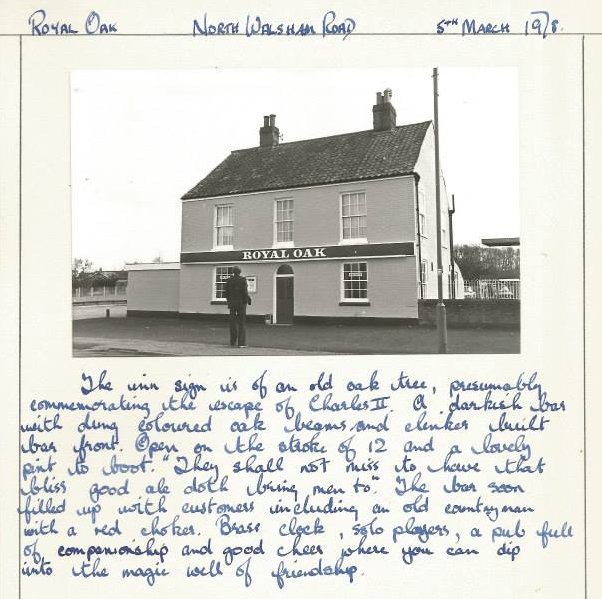 ROYAL OAK NORTH WALSHAM ROAD 5TH MARCH 1978.
ROYAL OAK
The inn sign is of an old oak tree, presumably
commemorating the escape of Charles II. A darkish bar
with dung coloured oak beams and clinker built
bar front. Open on the stroke of 12 and a lovely
pint to boot. "They shall not miss to have that
bliss good ale doth bring men to." The bar soon
filled up with customers including an old countryman
with a red choker. Brass clock, solo players, a pub full
of companionship and good cheer where you can dip
into the magic well of friendship.